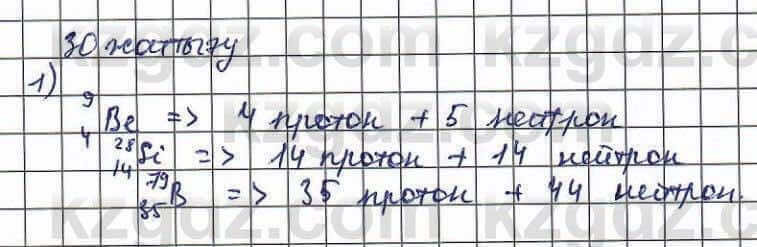 30 жаттығу
1) ⁹₄Be => 4 протон + 5 нейтрон
²⁸₁₄Si => 14 протон + 14 нейтрон
⁷⁹₃₅B => 35 протон + 44 нейтрон.